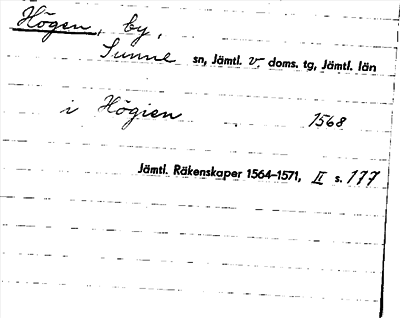 Högen, by,
Sunne sn, Jämtl. v. doms. tg, Jämtl. län
i Högien 1568
Jämtl. Räkenskaper 1564-1571, II s. 177